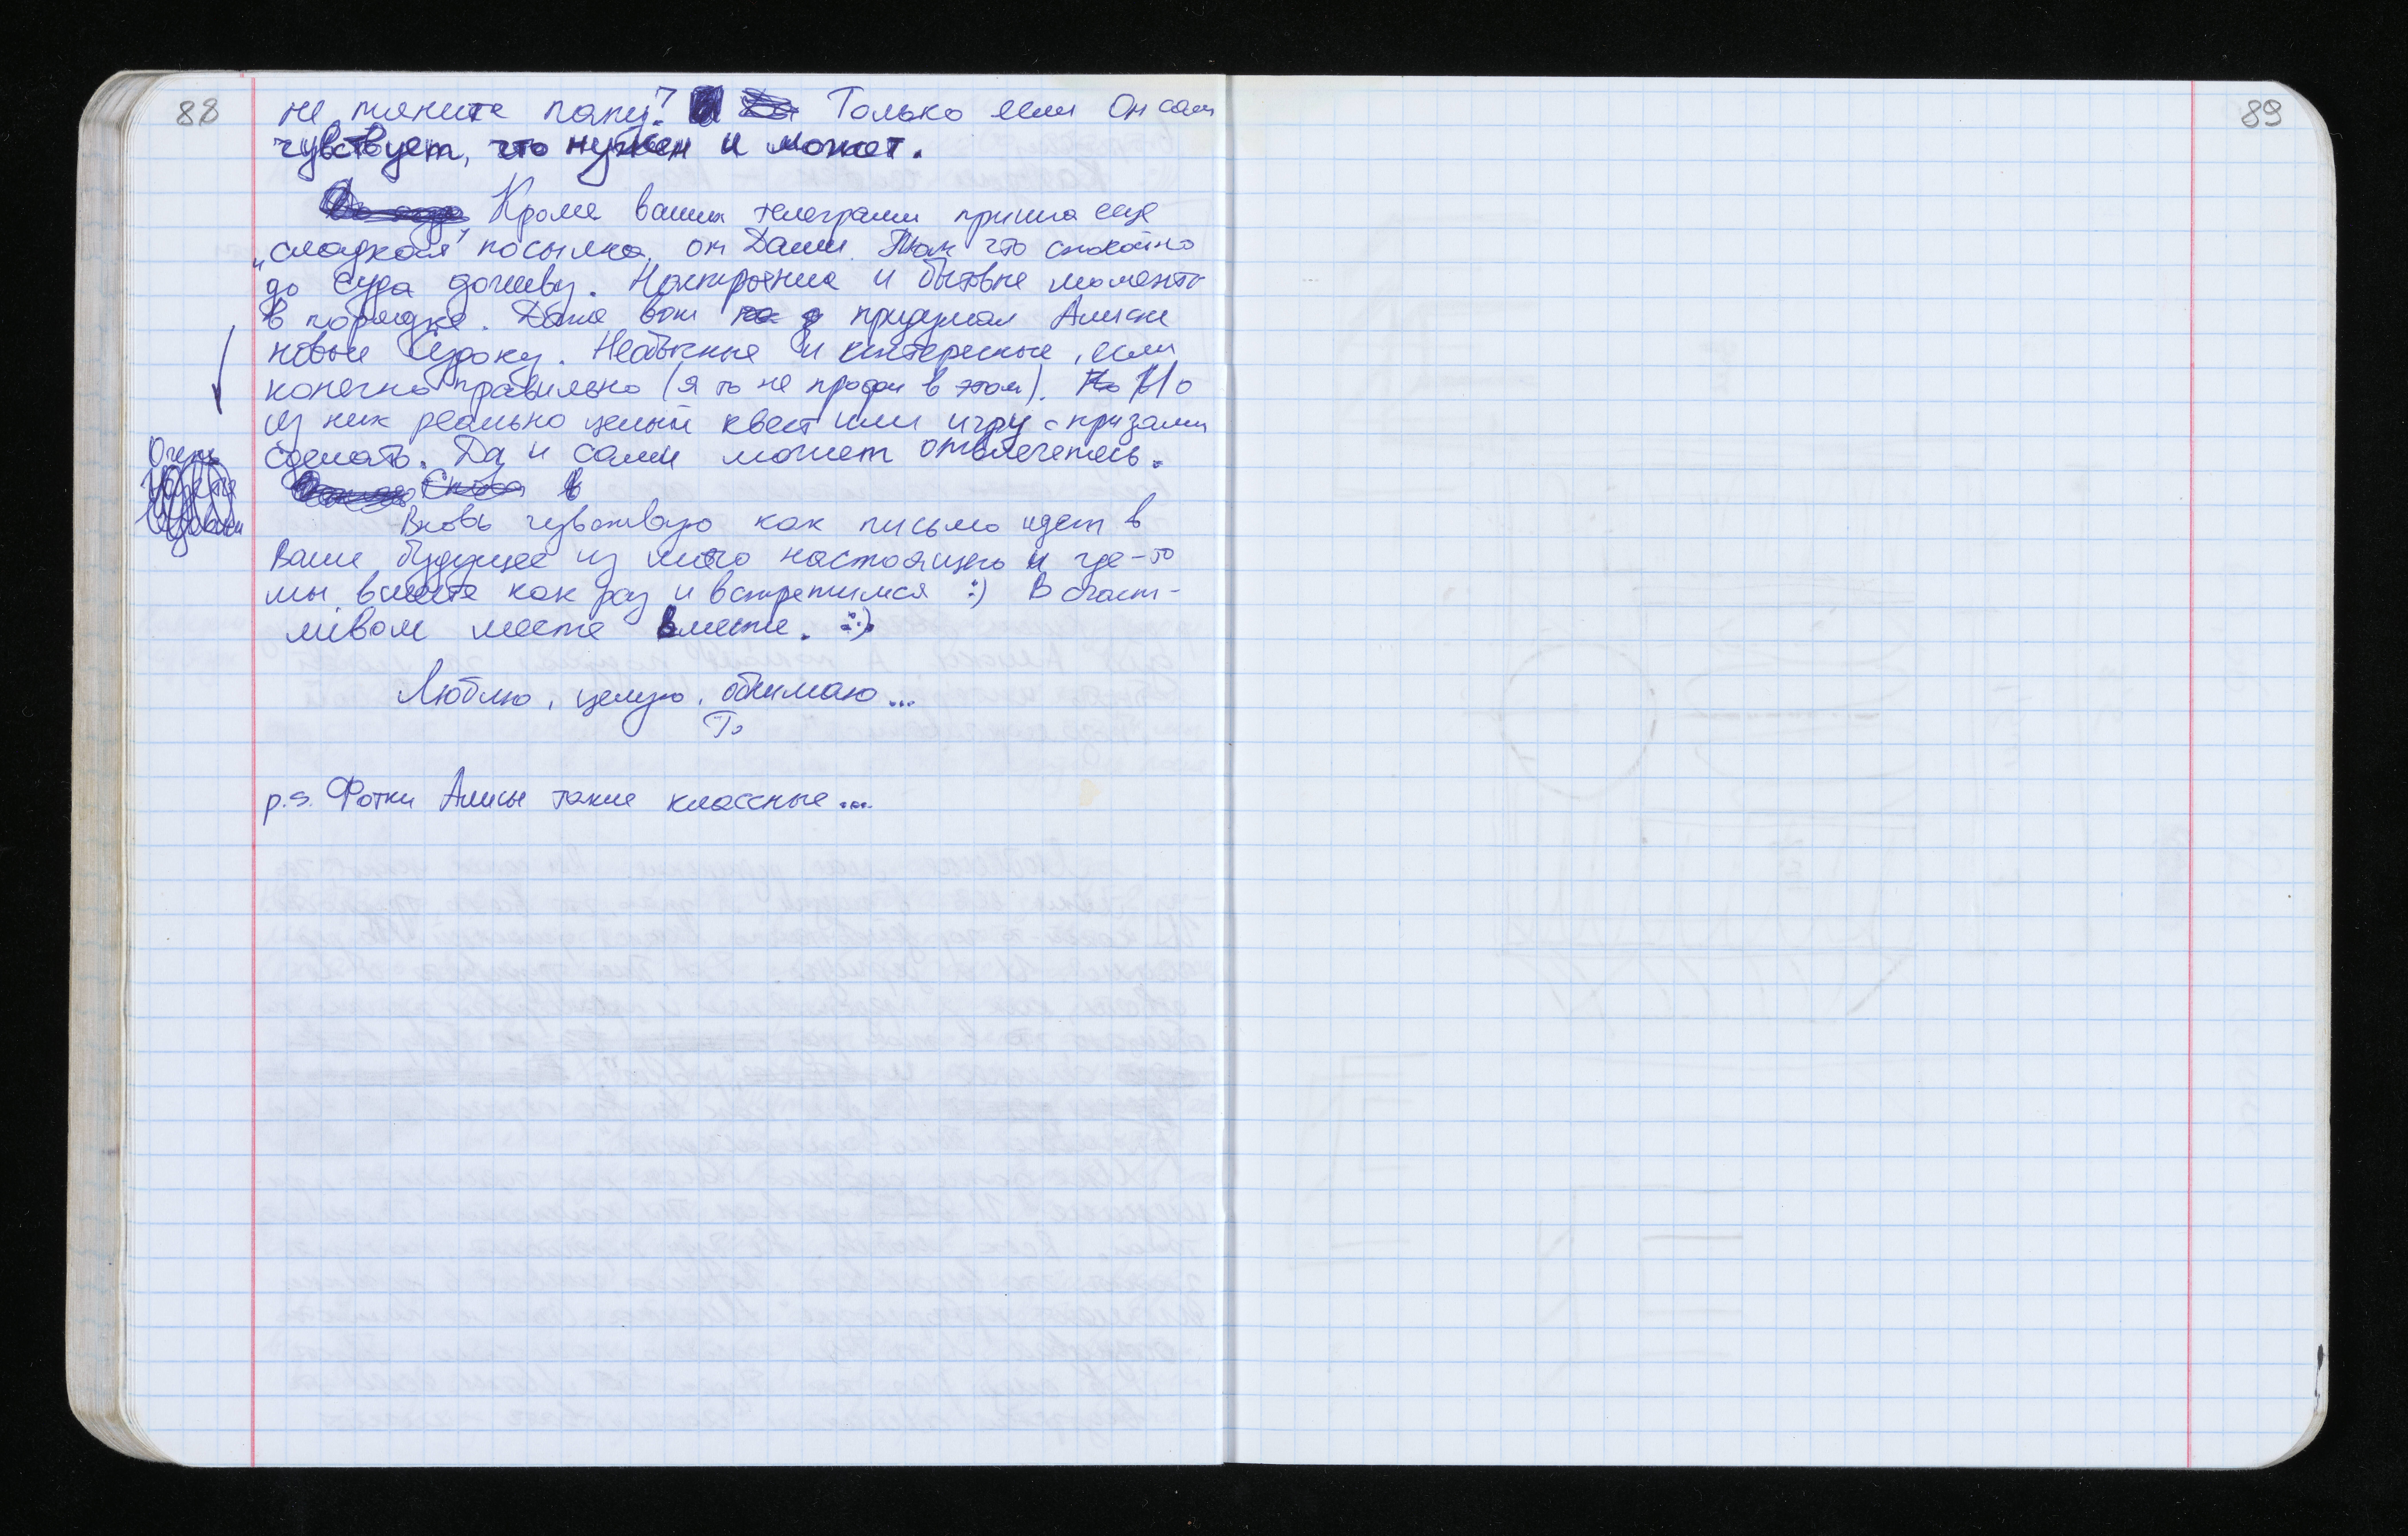 88
не тяните папу? Только если Он сам
чувствует, что нужен и может.
Кроме ваших телеграмм пришла еще
„сладкая" посылка от Даши. Так что спокойно
до Суда доживу. Настроение и бытовые моменты
в порядке. Даже вот придумал Алиске
новые Судоку. Необычные и интересные, если
конечно правильно (я то не профи в этом). Но
из них реально целый квест или игру с призами
сделать. Да и сами может отвлечетесь.
Очень
Вновь чувствую как письмо идет в
Ваше будущее из моего настоящего и где-то
мы вместе как раз и встретимся :) В счаст-
ливом месте вместе. :)
Люблю, целую, обнимаю...
p.s. Фотки Алисы такие классные...
89